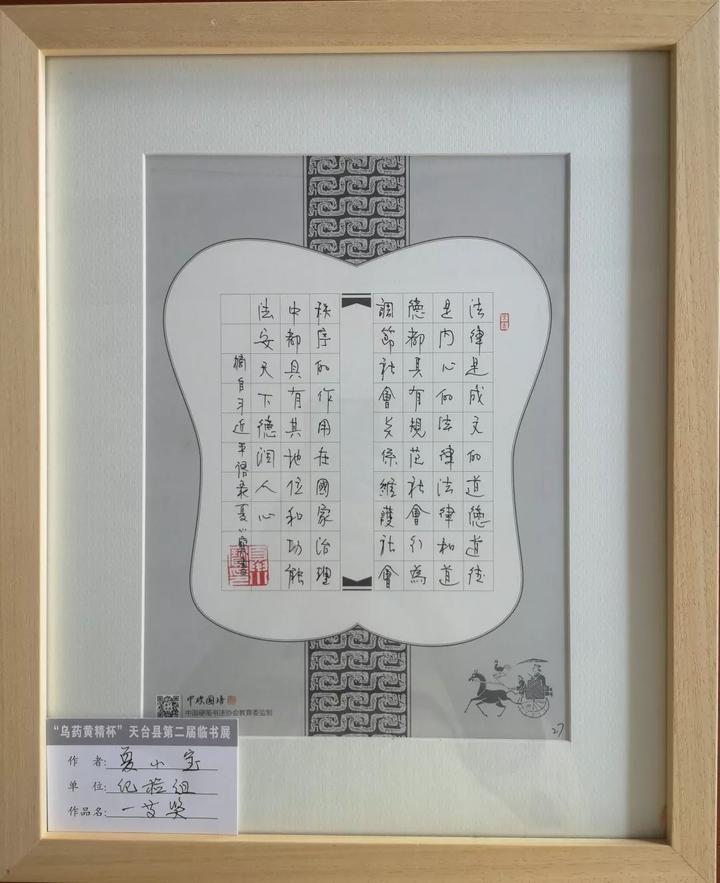 法律是成文的道德道德
是内心的法律法律和道
德都具有規范社會行為
調節社會关係維護社會
秩序的作用在國家治理
中都具有其地位和功能
法安天下德润人心
摘自习近平语录夏小宝書
中碳国培
中国硬笔书法协会教育委监制
27
“乌药黄精杯”天台县第二届临书展
作 者：夏小宝
单 位：纪检组
作品名：一等奖